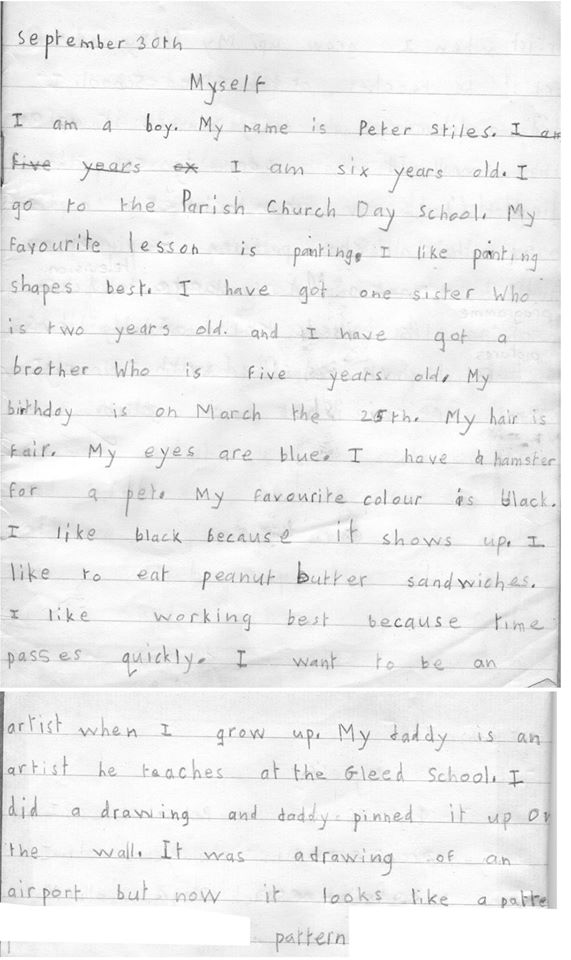 September 30th
Myself
I am a boy. My name is Peter Stiles. I am
five years ex I am six years old. I
go to the Parish Church Day School. My
favourite lesson is painting. I like painting
shapes best. I have got one sister Who
is two years old. and I have got a
brother Who is five years old. My
birthday is on March the 25th. My hair is
fair. My eyes are blue. I have a hamster
for a pet. My favourite colour is black.
I like black because it shows up. I
like to eat peanut butter sandwiches.
I like working best because time
passes quickly. I want to be an
artist when I grow up. My daddy is an
artist he teaches at the Gleed School. I
did a drawing and daddy pinned it up on
the wall. It was adrawing of an
airport but now it looks like a patte
pattern